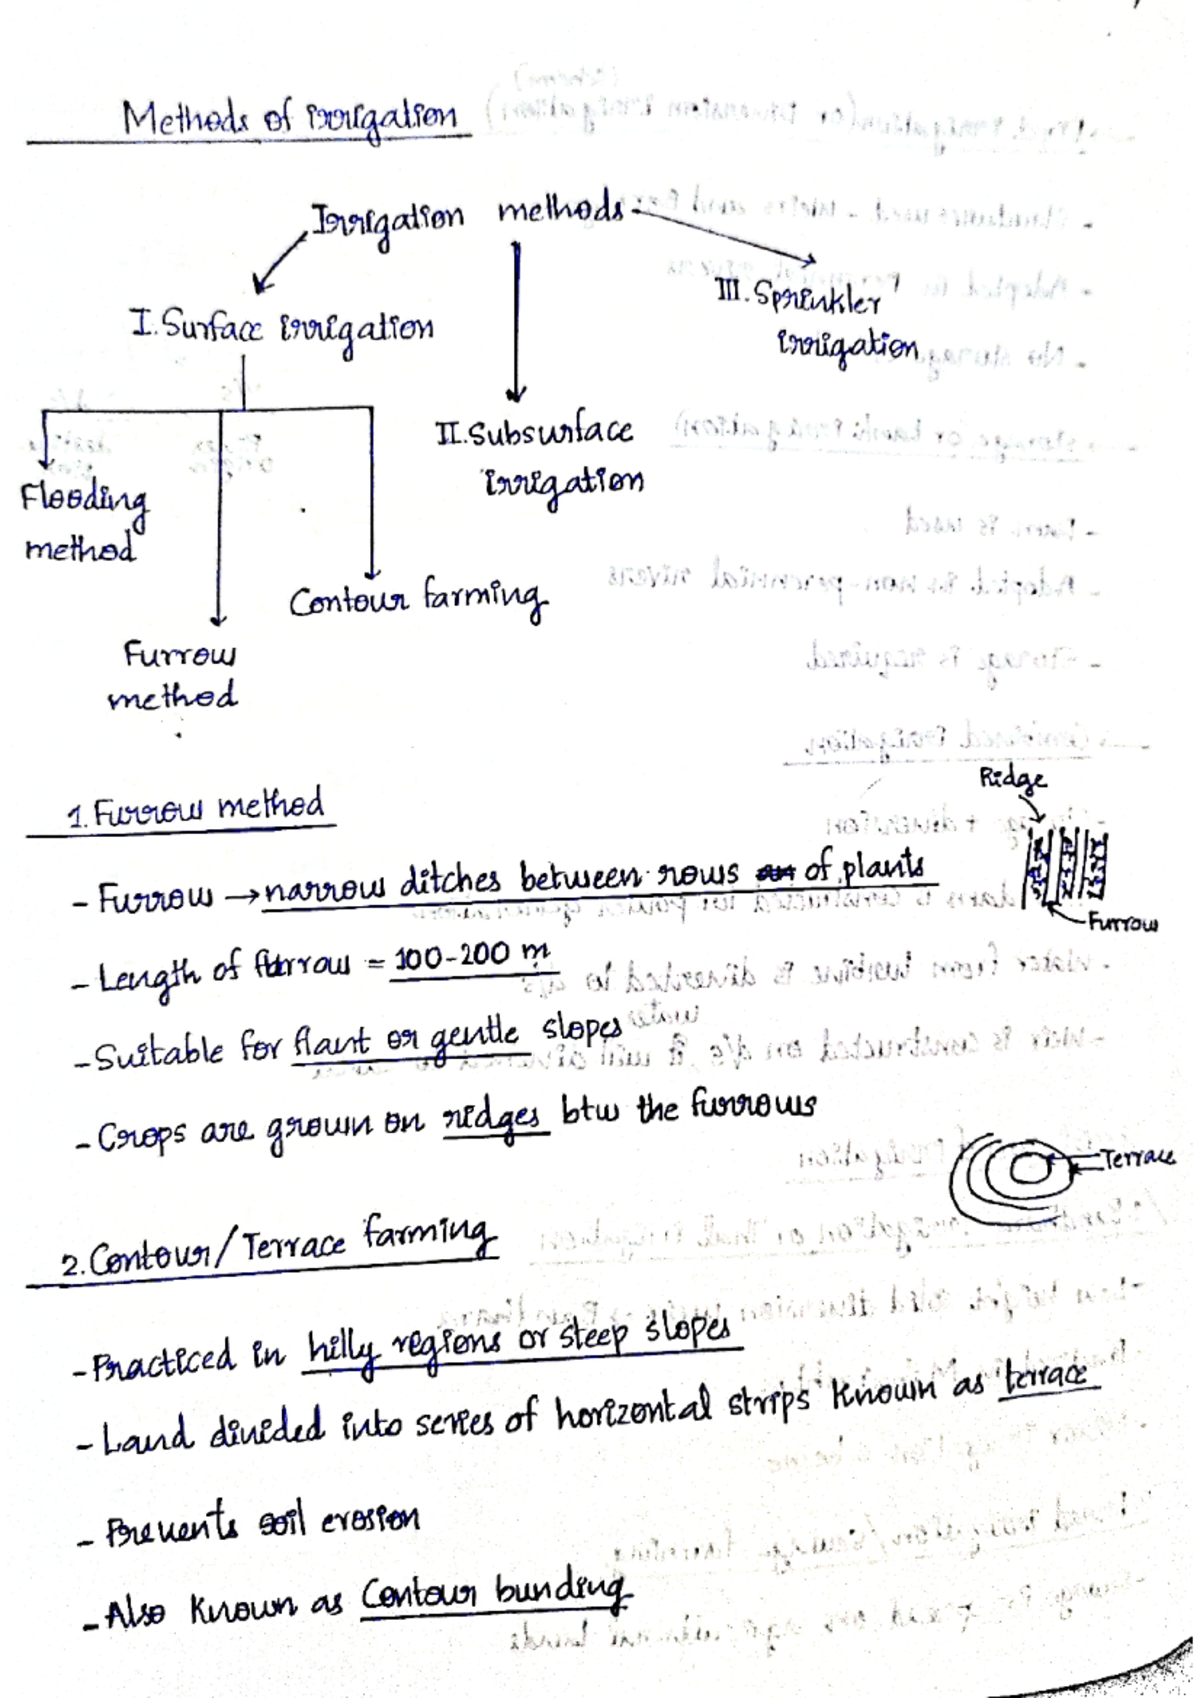 Methods of irrigation
Irrigation methods
I. Surface irrigation
III. Sprinkler
irrigation
II. Subsurface
irrigation
Flooding
method
Contour farming
Furrow
method
1. Furrow method
Ridge
- Furrow → narrow ditches between rows of plants
Furrow
- Length of furrow = 100-200 m
- Suitable for flant or gentle slopes
- Crops are grown on ridges btw the furrows
Terrace
2. Contour/Terrace farming
- Practiced in hilly regions or steep slopes
- Land divided into series of horizontal strips known as terrace
- Prevents soil erosion
- Also known as Contour bunding